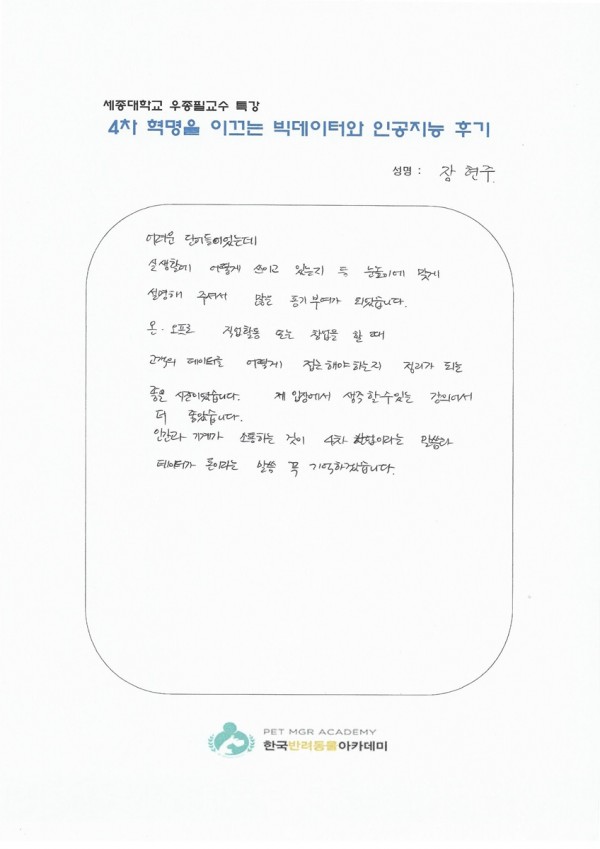 세종대학교 우종필교수 특강
4차 혁명을 이끄는 빅데이터와 인공지능 후기
성명 : 장 현주
어려운 단어들이있는데
실생활에 어떻게 쓰이고 있는지 등 눈높이에 맞게
설명해 주셔서 많은 동기부여가 되었습니다.
온·오프로 직업활동 또는 창업을 할 때
고객의 데이터를 어떻게 접근해야하는지 정리가 되는
좋은 시간이었습니다. 제 입장에서 생각할수있는 강의여서
더 좋았습니다.
인간과 기계가 소통하는 것이 4차 혁명이라는 말씀과
데이터가 돈이라는 말씀 꼭 기억하겠습니다.
PET MGR ACADEMY
한국반려동물아카데미